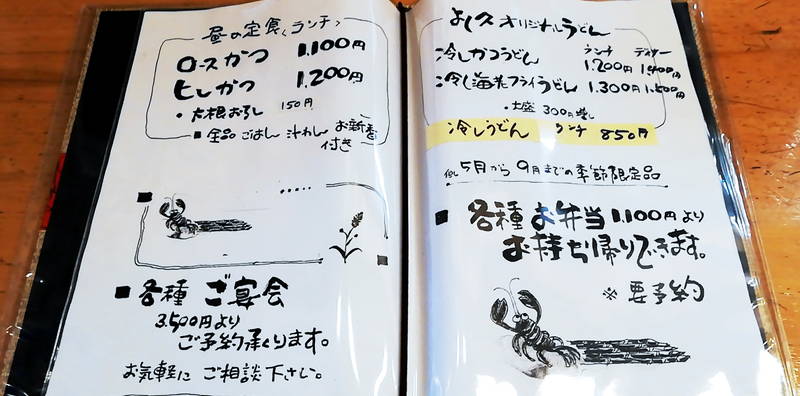 昼の定食〈ランチ〉
ロースかつ 1.100円
ヒレかつ 1.200円
・大根おろし 150円
■全品ごはん 汁わん お新香付き
■各種 ご宴会
3.500円より
ご予約承ります。
お気軽に ご相談下さい。
よし久 オリジナルうどん
ランチ ディナー
冷しかつうどん 1.200円 1.400円
冷し海老フライうどん 1.300円 1.500円
・大盛 300円増し
冷しうどん ランチ 850円
但し5月から9月までの季節限定品
■各種お弁当1.100円より
お持ち帰りできます。
※要予約